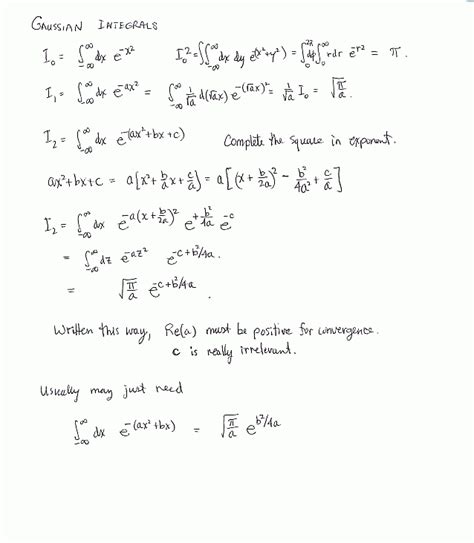 GAUSSIAN INTEGRALS
I₀ = ∫_{-∞}^{∞} dx e^{-x²}    I₀² = ∫∫_{-∞}^{∞} dx dy e^{-(x²+y²)} = ∫₀^{2π} dφ ∫₀^{∞} r dr e^{-r²} = π.
I₁ = ∫_{-∞}^{∞} dx e^{-ax²} = ∫_{-∞}^{∞} 1/√a d(√a x) e^{-(√a x)²} = 1/√a I₀ = √(π/a).
I₂ = ∫_{-∞}^{∞} dx e^{-(ax²+bx+c)}    Complete the square in exponent.
ax²+bx+c = a[x² + b/a x + c/a] = a[(x + b/2a)² - b²/4a² + c/a]
I₂ = ∫_{-∞}^{∞} dx e^{-a(x + b/2a)²} e^{+b²/4a} e^{-c}
= ∫_{-∞}^{∞} dz e^{-az²} e^{-c+b²/4a}
= √(π/a) e^{-c+b²/4a}.
Written this way, Re(a) must be positive for convergence.
c is really irrelevant.
Usually may just need
∫_{-∞}^{∞} dx e^{-(ax²+bx)} = √(π/a) e^{b²/4a}